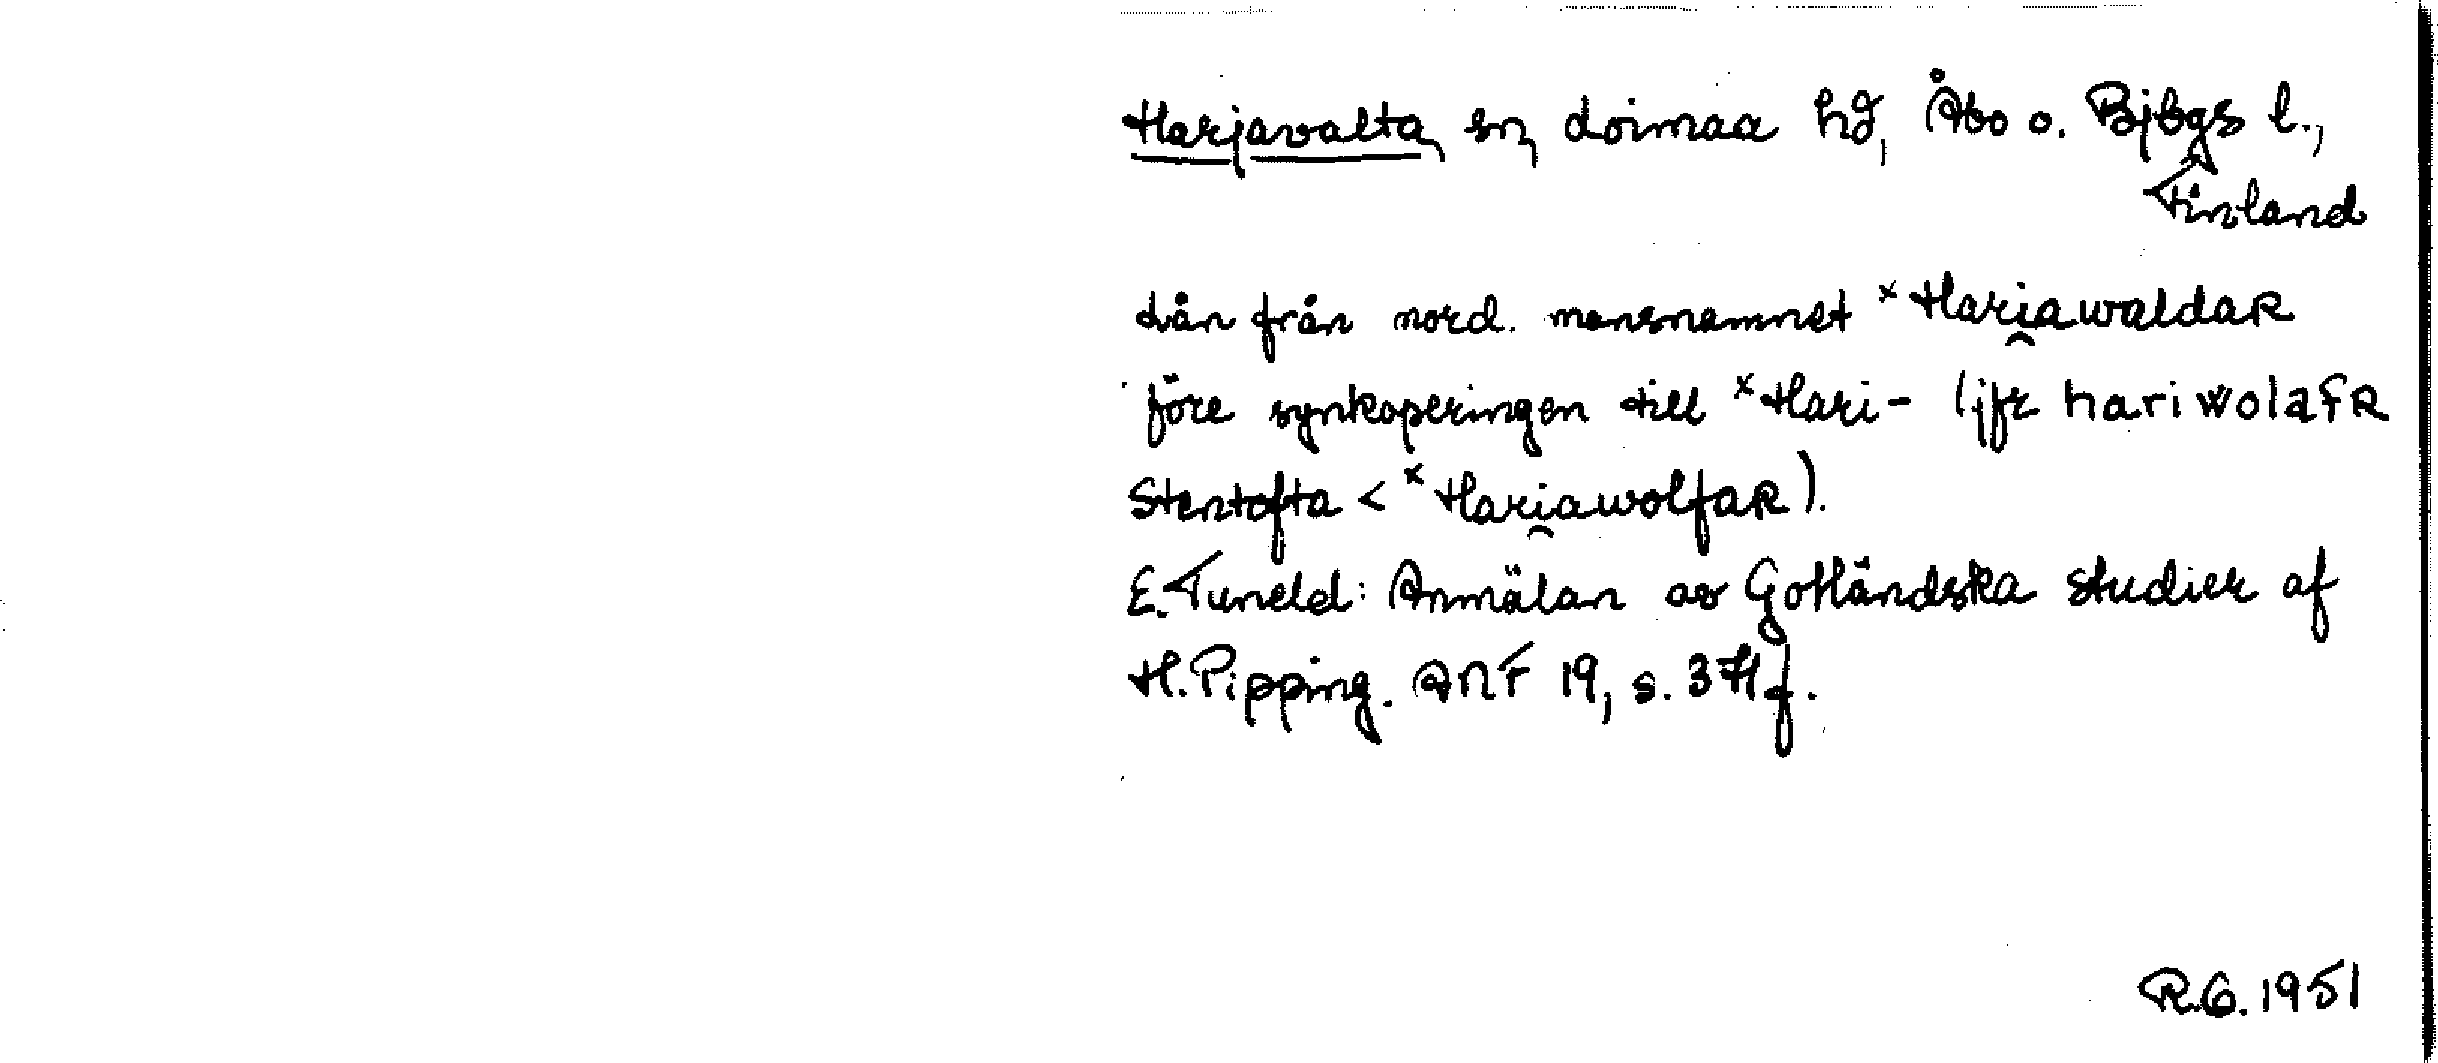 Harjavalta, sn, Loimaa hd, Åbo o. Bjbgs l.,
Finland
Lån från nord. mansnamnet ˣHari̯awaldaR
före synkoperingen till ˣHari- (jfr hariwolafR
Stentofta < ˣHari̯awolfaR).
E. Tuneld: Anmälan av Gotländska studier af
H. Pipping. ANF 19, s. 371 f.
R.G. 1951